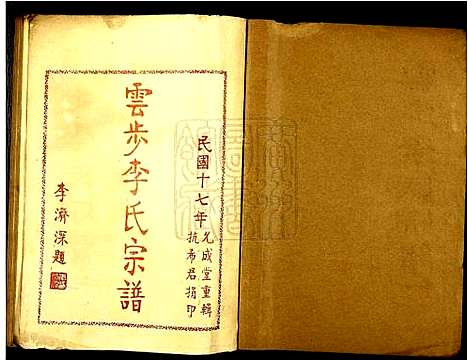 民國十七年
允成堂重輯
抗希君捐印
雲步李氏宗譜
李濟深題